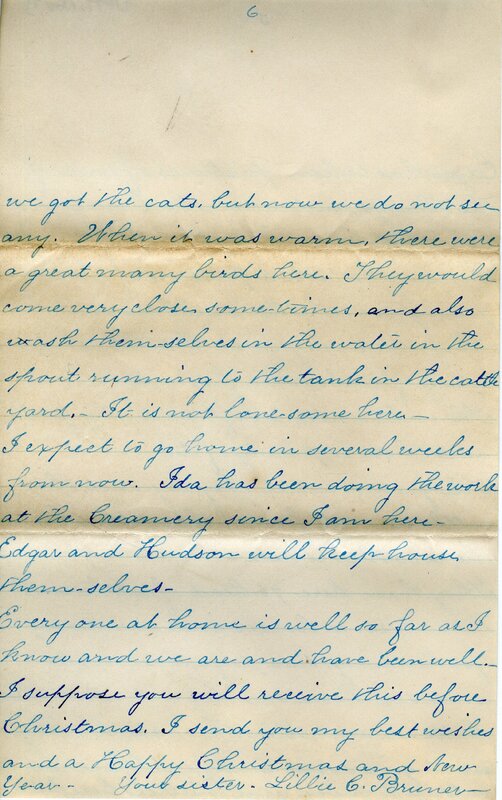 6
we got the cats, but now we do not see
any. When it was warm, there were
a great many birds here. They would
come very close some-times, and also
wash them-selves in the water in the
spout running to the tank in the cattle
yard. - It is not lone-some here -
I expect to go home in several weeks
from now. Ida has been doing the work
at the Creamery since I am here -
Edgar and Hudson will keep house
them-selves -
Every one at home is well so far as I
know and we are and have been well.
I suppose you will receive this before
Christmas. I send you my best wishes
and a Happy Christmas and New
Year - Your sister - Lillie C. Bruner -